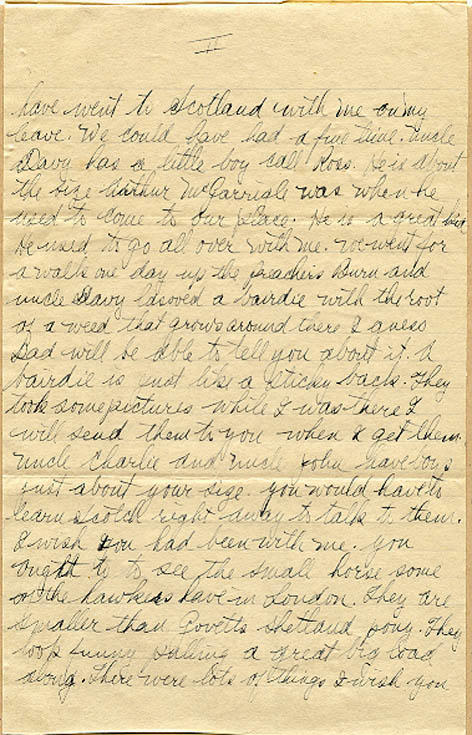 II
have went to Scotland with me on my
leave. We could have had a fine time. Uncle
Davy has a little boy call Ross. He is about
the size Arthur McGarrigle was when he
used to come to our place. He is a great kid
He used to go all over with me. We went for
a walk one day up the Preachers Burn and
uncle Davy a bairdie with the root
of a weed that grows around there I guess
Dad will be able to tell you about it. A
bairdie is just like a sticky back. They
took some pictures while I was there I
will send them to you when I get them.
Uncle Charlie and uncle John have boys
just about your size. you would have to
learn Scotch right away to talk to them.
I wish you had been with me. you
ought to to see the small horse some
of the hawkers have in London. They are
smaller than Povetts Shetland pony. They
look funny pulling a great big load
along. There were lots of things I wish you